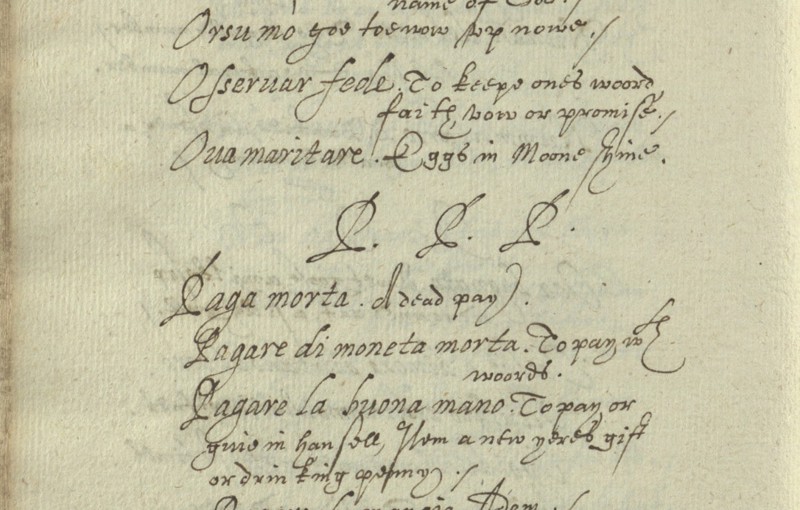 name of God ./
Orsu mò goe toe now vp nowe ./
Osseruar fede . To keepe ones woord,
faith, vow or promise ./
Oua maritare . Eggs in Moone shine .
P. P. P.
Paga morta . A dead pay .
Pagare di moneta morta . To pay wth
woords .
Pagare la buona mano . To pay or
giue in hansell, Item a new yeres gift
or drinking penny ./
Idem ./